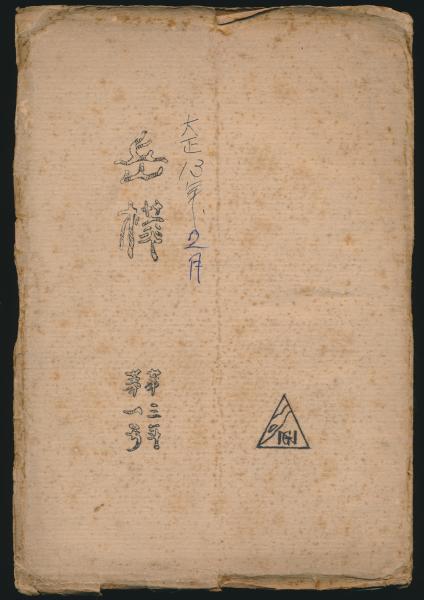 大正13年、2月
岳樺
第三年
第一号